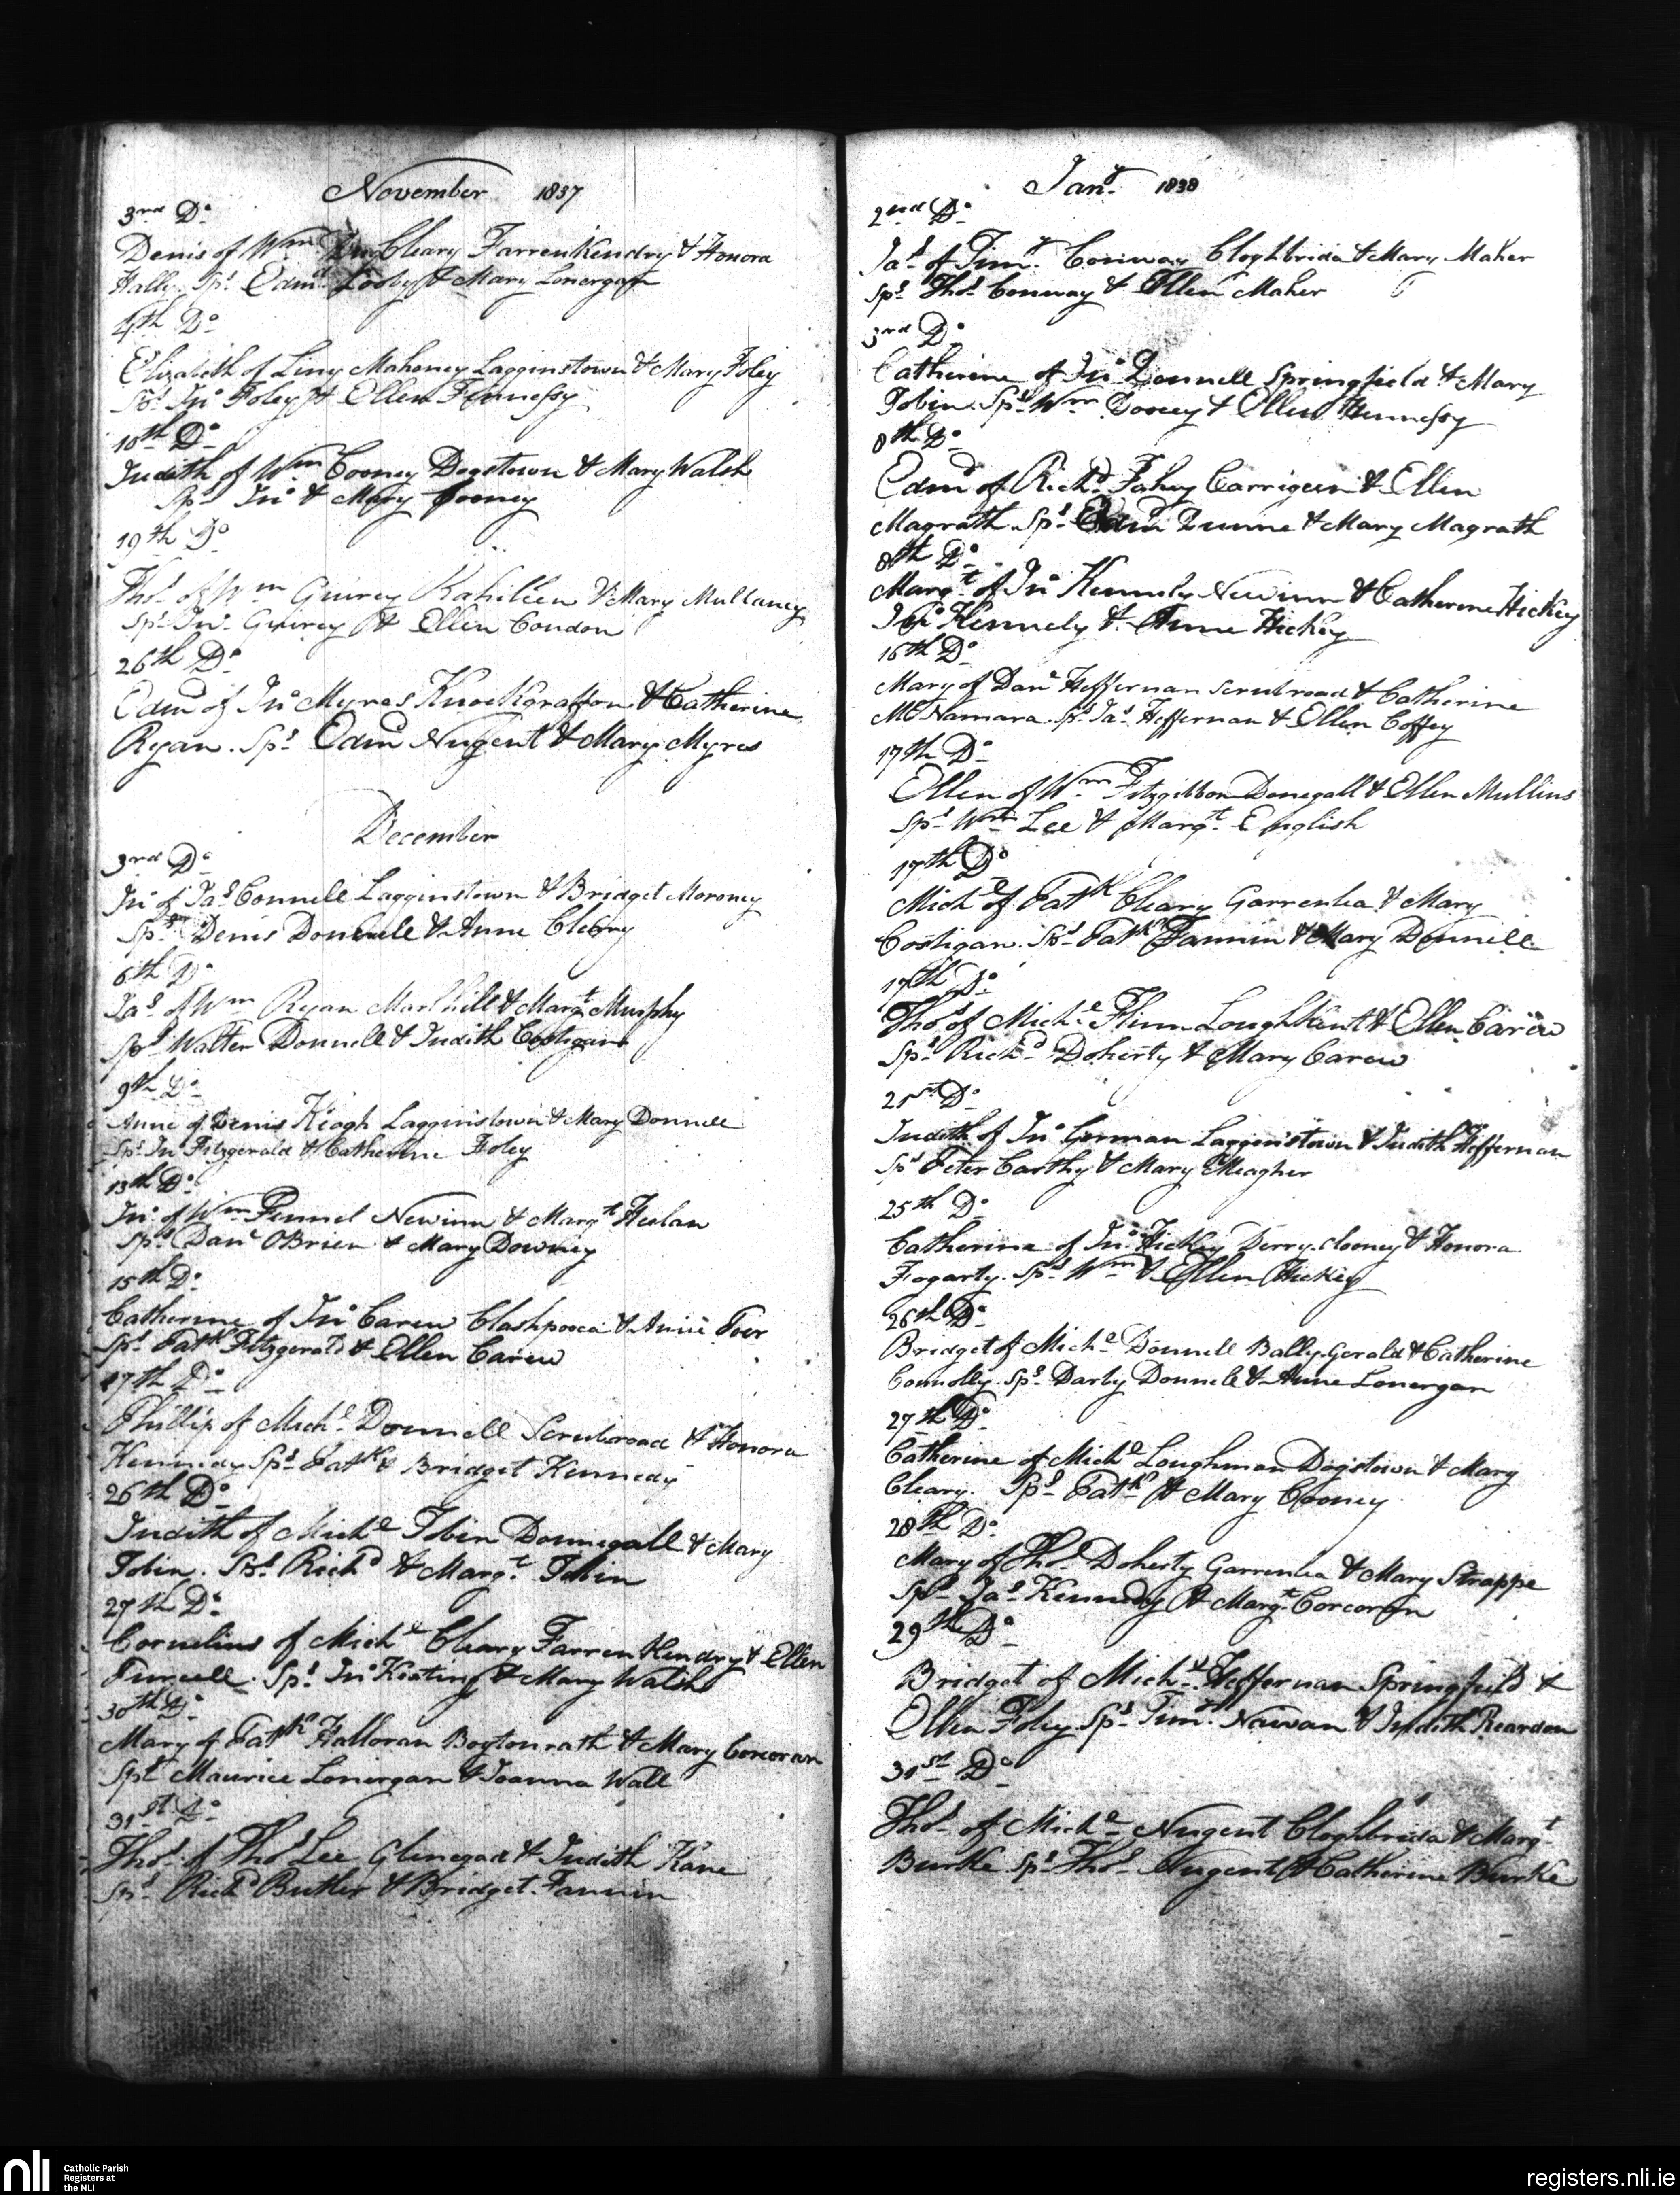 November 1837
3rd Do
Denis of Wm Cleary Farrenkendry & Honora
Hally. Sps Edmd Looby & Mary Lonergan
4th Do
Elizabeth of Mahoney Lagginstown & Mary Foley
Sps Jno Foley & Ellen Hennessy
10th Do
Judith of Wm Cooney Dogstown & Mary Walsh
Sps Jno & Mary Cooney
19th Do
Thos of Wm Guirey Kahileen & Mary Mullaney
Sps Jno Guirey & Ellen Condon
26th Do
Edmd of Jno Myres Knockgraffon & Catherine
Ryan. Sps Edmd Nugent & Mary Myres
December
3rd Do
Jno of Jas Connell Lagginstown & Bridget Moroney
Sps Denis Donnell & Anne Cleary
6th Do
Jas of Wm Ryan Marlhill & Margt Murphy
Sps Walter Donnell & Judith Costigan
9th Do
Anne of Denis Keogh Lagginstown & Mary Donnell
Sps Jno Fitzgerald & Catherine Foley
13th Do
Jno of Wm Pennel Newinn & Margt
Sps Danl OBrien & Mary Downey
15th Do
Catherine of Jno Carew Clashpooca & Anne Poer
Sps Patk Fitzgerald & Ellen Carew
17th Do
Phillip of Michl Donnell Scrubroad & Honora
Kennedy Sps Patk & Bridget Kennedy
26th Do
Judith of Michl Tobin Donnegall & Mary
Tobin. Sps Richd & Margt Tobin
27th Do
Cornelius of Michl Cleary Farrenkendry & Ellen
Purcell. Sps Jno Keating & Mary Walsh
30th Do
Mary of Patk Halloran Boytonrath & Mary Corcoran
Sps Maurice Lonergan & Joanna Wall
31st Do
Thos of Thos Lee Glenegad & Judith Kane
Sps Richd Butler & Bridget Fannin
Jany 1838
2nd Do
Jas of Timy Conway Cloghbrida & Mary Maher
Sps Thos Conway & Ellen Maher
3rd Do
Catherine of Jno Donnell Springfield & Mary
Tobin. Sps Wm & Ellen Hennessy
8th Do
Edmd of Richd Fahey Carrigeen & Ellen
Magrath Sps Edmd Dunne & Mary Magrath
8th Do
Margt of Jno Kennedy Newinn & Catherine Hickey
Jno Kennedy & Anne Hickey
16th Do
Mary of Danl Heffernan Scrubroad & Catherine
McNamara. Sps Jas Heffernan & Ellen Coffey
17th Do
Ellen of Wm Fitzgibbon Donegall & Ellen Mullins
Sps Wm Lee & Margt English
17th Do
Michl of Patk Cleary Garrenlea & Mary
Costigan. Sps Patk Fannin & Mary Donnell
19th Do
Thos of Michl Flinn Loughkent & Ellen Carew
Sps Richd Doherty & Mary Carew
21st Do
Judith of Jno Gorman Lagginstown & Judith Heffernan
Sps Peter Carthy & Mary Meagher
25th Do
Catherine of Jno Hickey Derry.clooney & Honora
Fogarty. Sps Wm & Ellen Hickey
26th Do
Bridget of Michl Donnell Bally.Gerald & Catherine
Connolly. Sps Darby Donnell & Anne Lonergan
27th Do
Catherine of Michl Loughman Dogstown & Mary
Cleary. Sps Patk & Mary Cooney
28th Do
Mary of Thos Doherty Garrenlea & Mary Strappe
Sps Jas Kennedy & Margt Corcoran
29th Do
Bridget of Michl Heffernan Springfield &
Ellen Foley Sps Timy Nawan & Judith Reardon
31st Do
Thos of Michl Nugent Cloghbrida & Margt
Burke Sps Thos Nugent & Catherine Burke
nli
Catholic Parish
Registers at
the NLI
registers.nli.ie